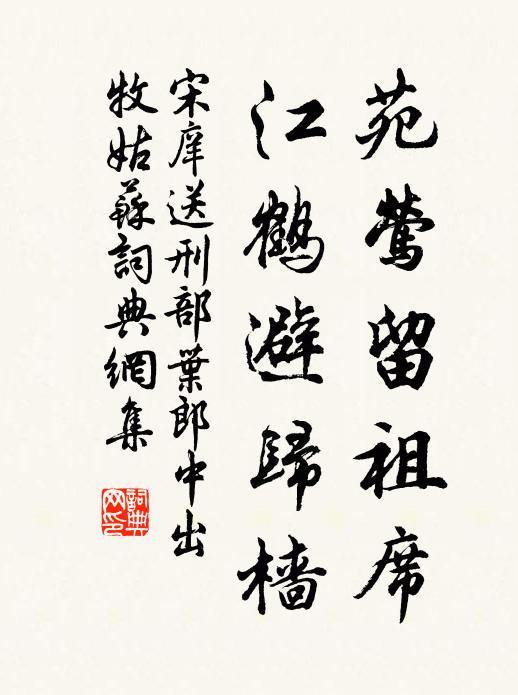 苑莺留祖席
江鹤避歸檣
宋庠送刑部葉郎中出
牧姑蘇詞典網集
詞典
网印